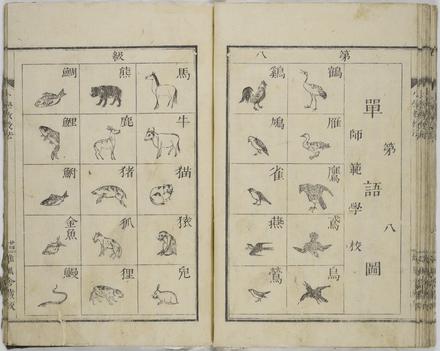 第八
單語圖
師範學校
第八
鶴
雁
鷹
鳶
烏
鷄
鳩
雀
燕
鶯
級
馬
牛
猫
猿
兎
熊
鹿
猪
狐
狸
鯛
鯉
鮒
金魚
鰻